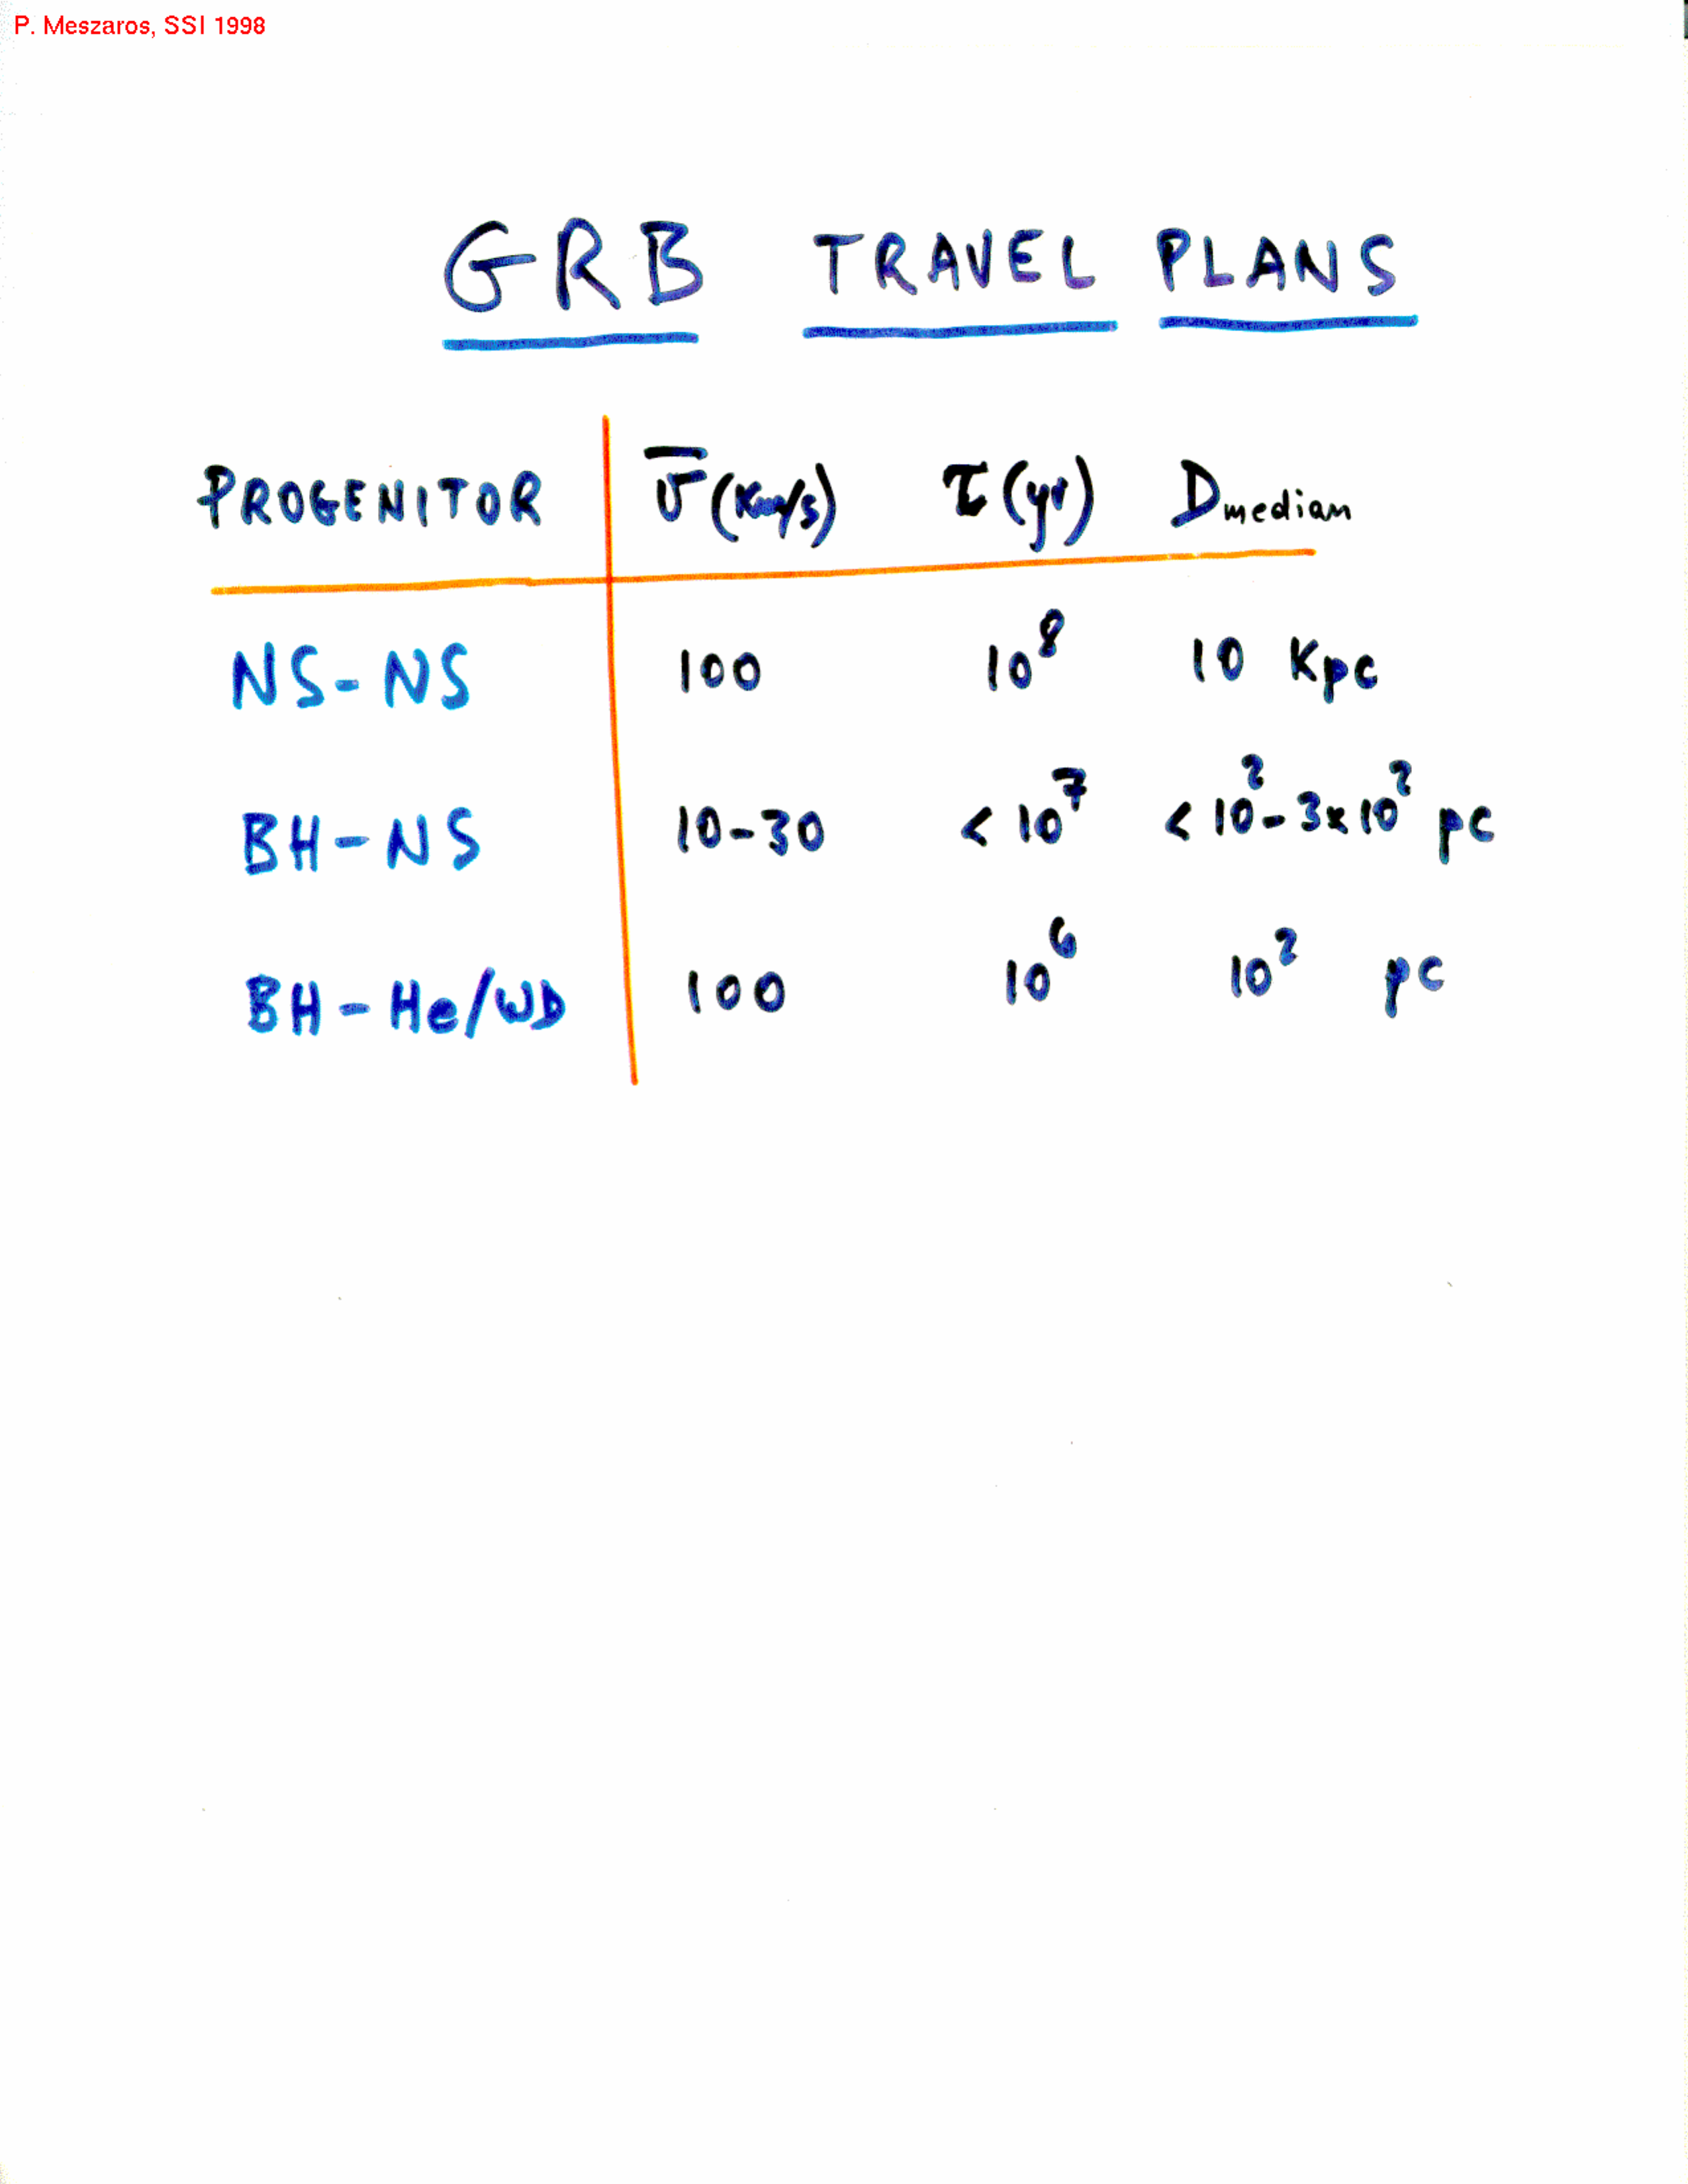 P. Meszaros, SSI 1998
GRB TRAVEL PLANS
PROGENITOR v̅ (Km/s) τ (yr) Dmedian
NS-NS 100 10⁸ 10 Kpc
BH-NS 10-30 < 10⁷ < 10²- 3x10² pc
BH-He/WD 100 10⁶ 10² pc